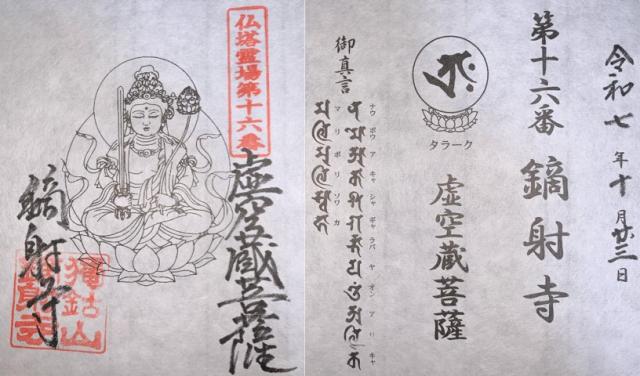 仏塔霊場第十六番
虚空蔵菩薩
鏑射寺
獨鈷山
鏑射寺
令和七年十月廿三日
第十六番 鏑射寺
タラーク
虚空蔵菩薩
御真言
ナウ ボウ ア キャ シャ ギャ ラバ ヤ オン ア リ キャ
マ リ ボ リ ソワ カ